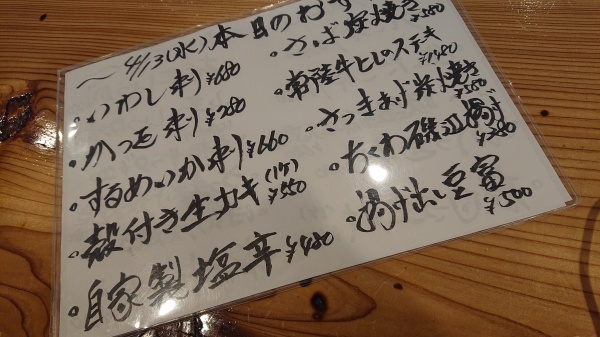 ～4/13(水)本日のおす
・いわし刺¥680
・かつを刺¥280
・するめいか刺¥660
・殻付き生カキ(1ケ)¥550
・自家製塩辛¥480
・さば炭焼き¥580
・常陸牛としのステーキ¥1480
・さつまあげ炭焼き¥580
・ちくわ磯辺揚げ¥380
・揚げ出し豆富¥500